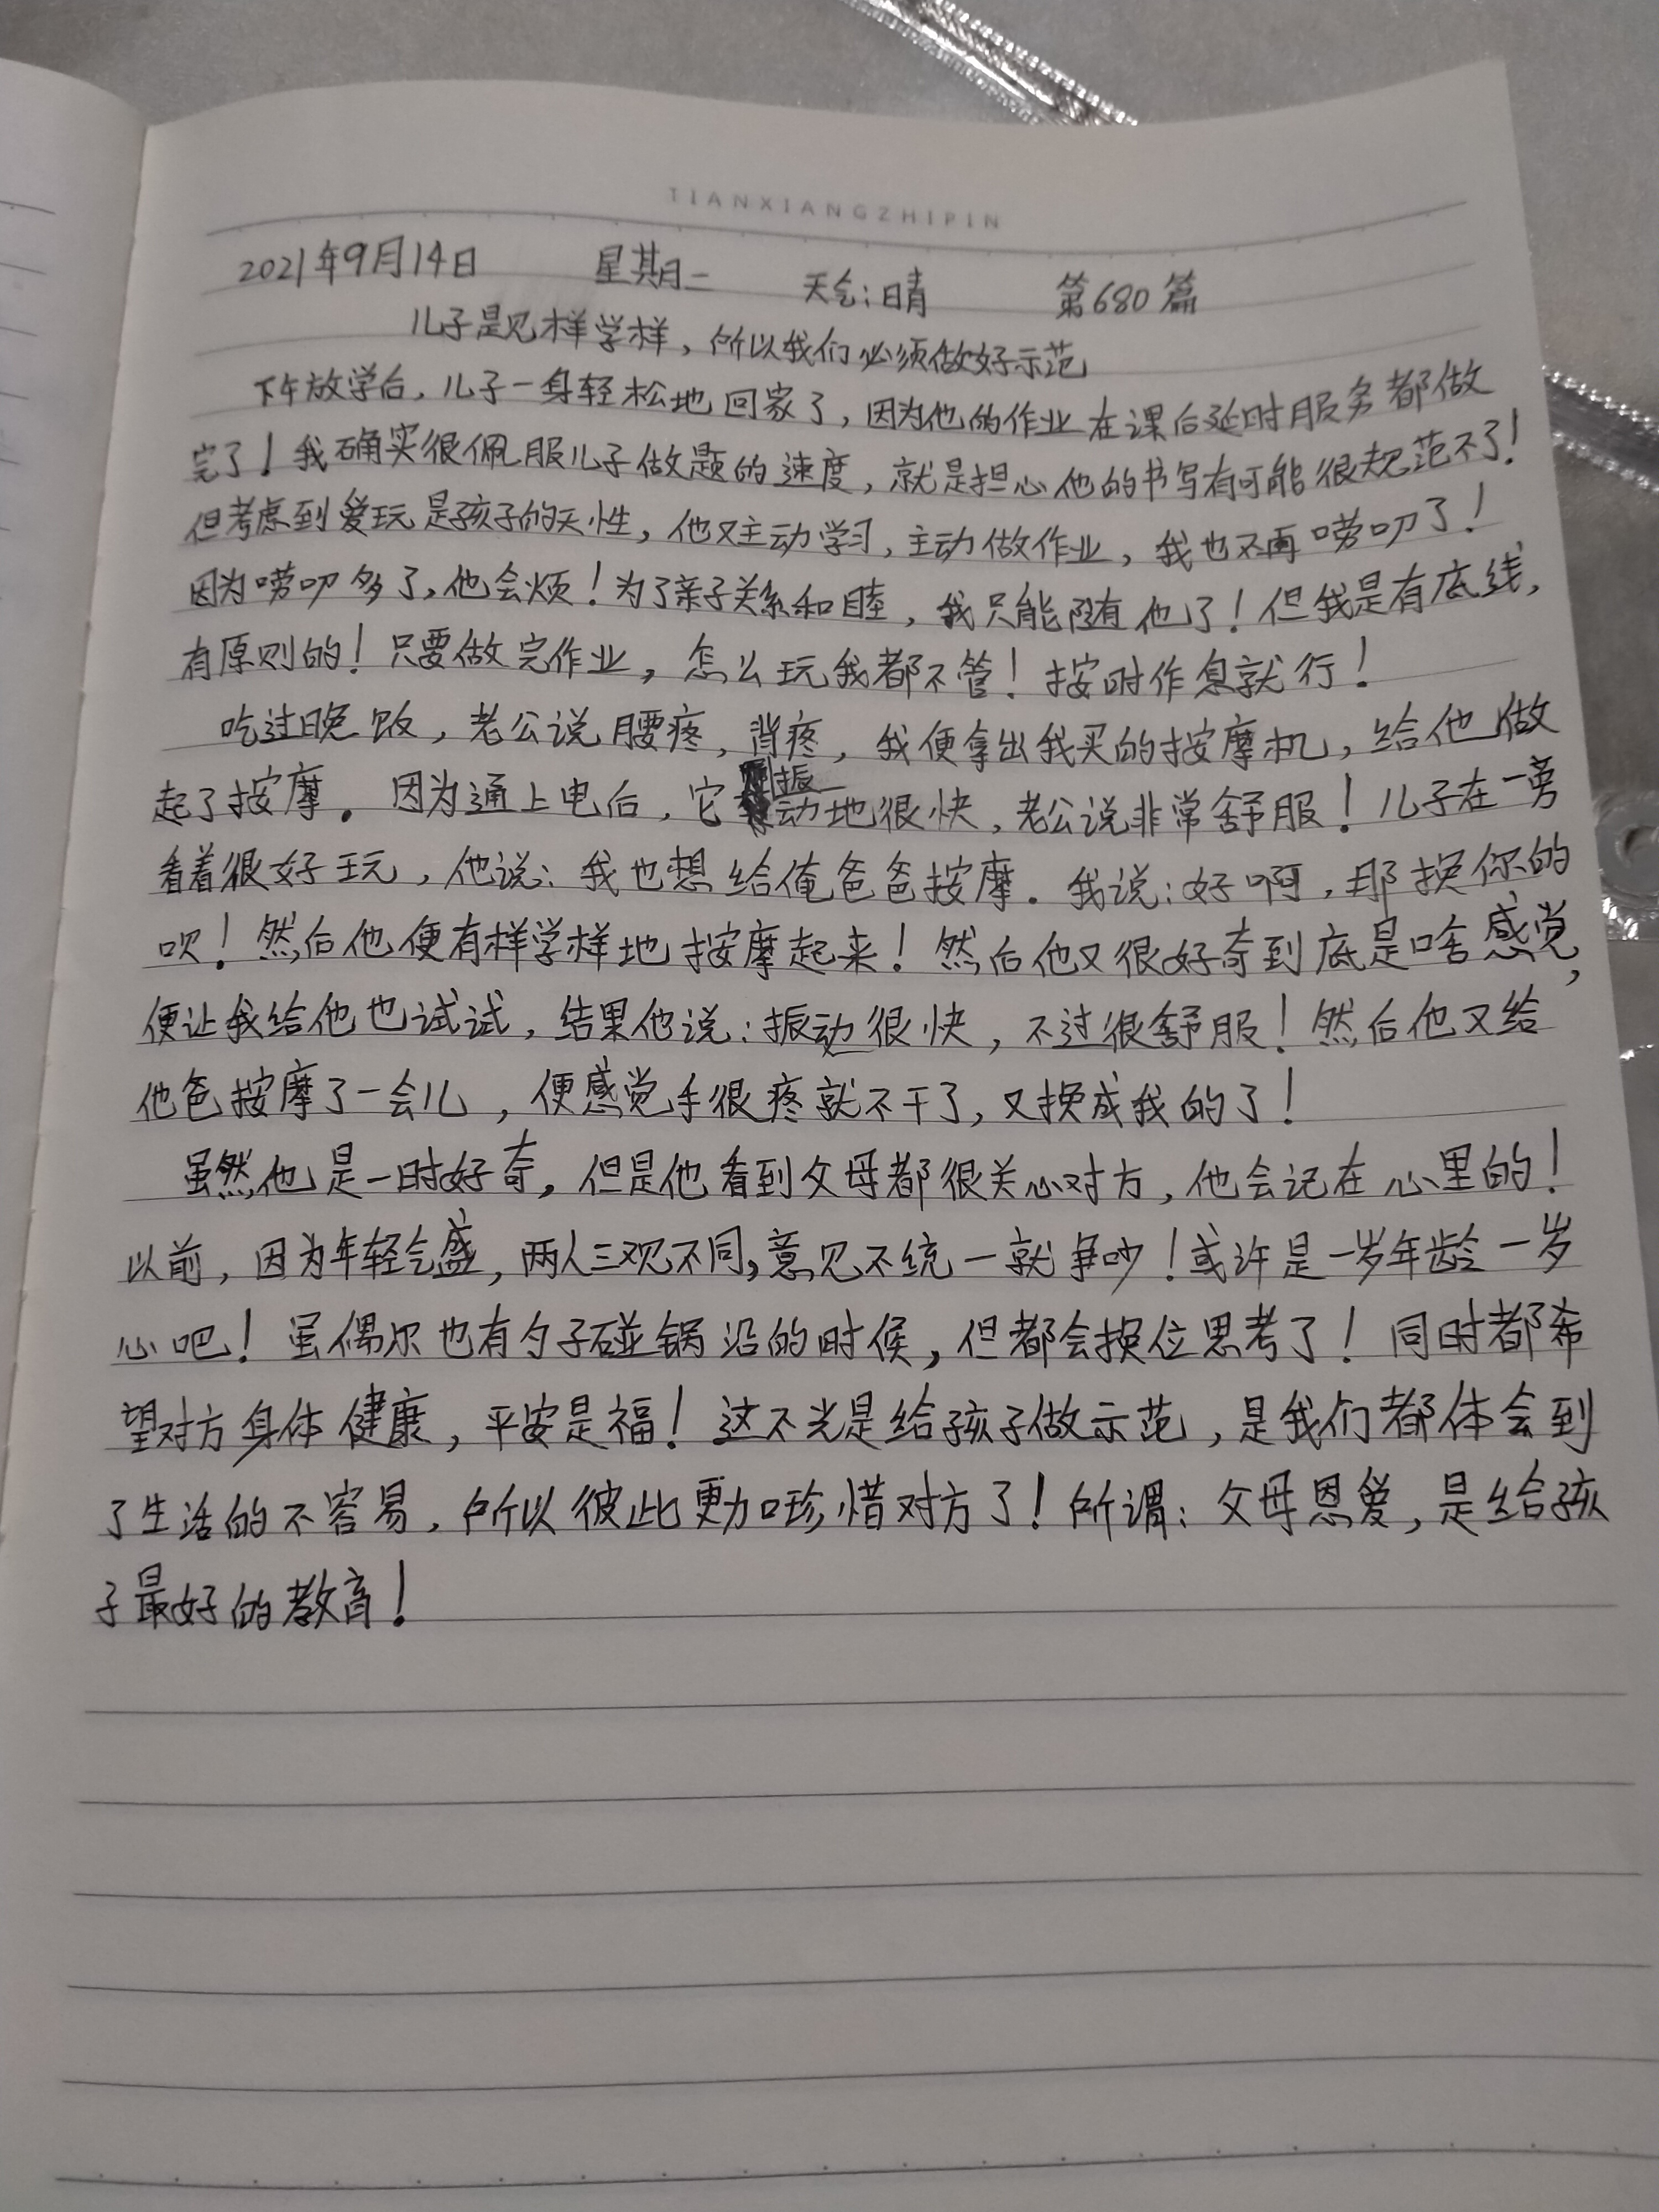 TIANXIANGZHIPIN
2021年9月14日 星期二 天气:晴 第680篇
儿子是见样学样，所以我们必须做好示范
下午放学后，儿子一身轻松地回家了，因为他的作业在课后延时服务都做
完了！我确实很佩服儿子做题的速度，就是担心他的书写有可能很规范不了！
但考虑到爱玩是孩子的天性，他又主动学习，主动做作业，我也不再唠叨了！
因为唠叨多了，他会烦！为了亲子关系和睦，我只能随他了！但我是有底线，
有原则的！只要做完作业，怎么玩我都不管！按时作息就行！
吃过晚饭，老公说腰疼，背疼，我便拿出我买的按摩机，给他做
起了按摩。因为通上电后，它振动地很快，老公说非常舒服！儿子在一旁
看着很好玩，他说：我也想给俺爸爸按摩。我说：好啊，那换你的
呗！然后他便有样学样地按摩起来！然后他又很好奇到底是啥感觉，
便让我给他也试试，结果他说：振动很快，不过很舒服！然后他又给
他爸按摩了一会儿，便感觉手很疼就不干了，又换成我的了！
虽然他是一时好奇，但是他看到父母都很关心对方，他会记在心里的！
以前，因为年轻气盛，两人三观不同，意见不统一就争吵！或许是一岁年龄一岁
心吧！虽偶尔也有勺子碰锅沿的时候，但都会换位思考了！同时都希
望对方身体健康，平安是福！这不光是给孩子做示范，是我们都体会到
了生活的不容易，所以彼此更加珍惜对方了！所谓：父母恩爱，是给孩
子最好的教育！